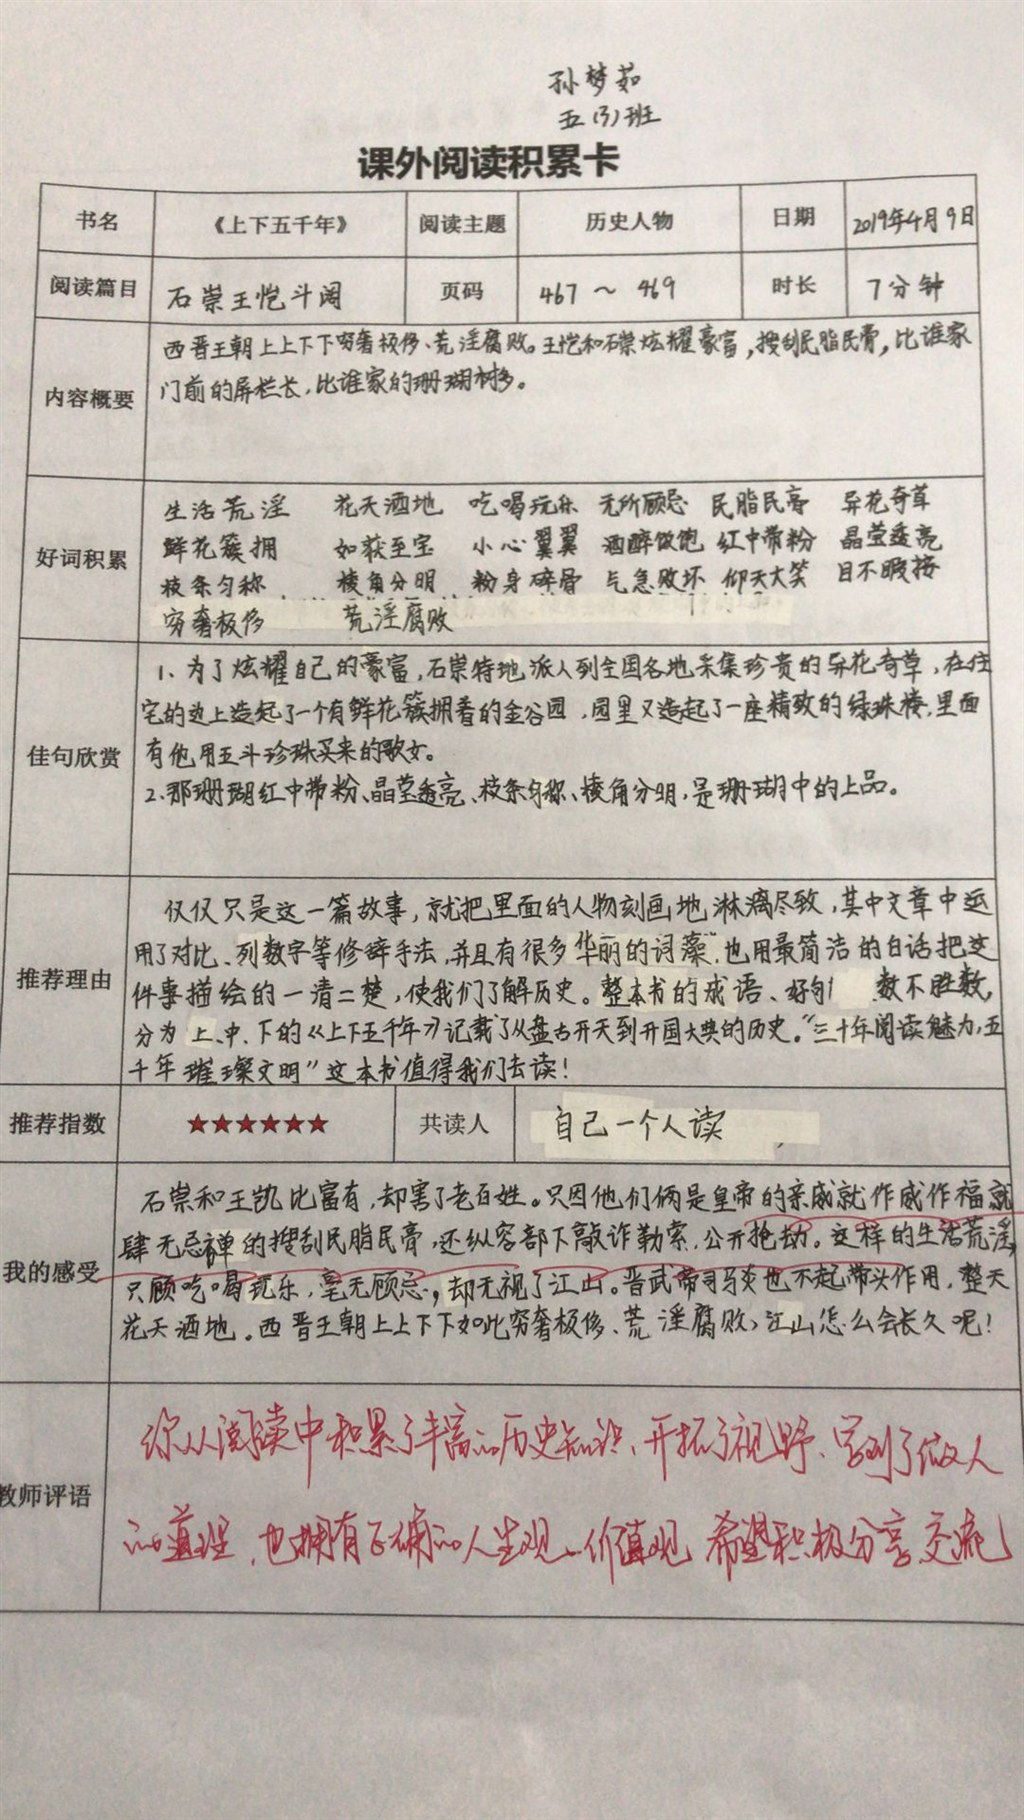 孙梦茹
五(3)班
课外阅读积累卡
书名 《上下五千年》 阅读主题 历史人物 日期 2019年4月9日
阅读篇目 石崇王恺斗阔 页码 467～469 时长 7分钟
内容概要
西晋王朝上上下下穷奢极侈、荒淫腐败。王恺和石崇炫耀豪富，搜刮民脂民膏，比谁家
门前的屏栏长，比谁家的珊瑚树多。
好词积累
生活荒淫 花天酒地 吃喝玩乐 无所顾忌 民脂民膏 异花奇草
鲜花簇拥 如获至宝 小心翼翼 酒醉饭饱 红中带粉 晶莹透亮
枝条匀称 棱角分明 粉身碎骨 气急败坏 仰天大笑 目不暇接
穷奢极侈 荒淫腐败
佳句欣赏
1、为了炫耀自己的豪富，石崇特地派人到全国各地采集珍贵的异花奇草，在住
宅的边上造起了一个有鲜花簇拥着的金谷园，园里又造起了一座精致的绿珠楼，里面
有他用五斗珍珠买来的歌女。
2、那珊瑚红中带粉、晶莹透亮、枝条匀称、棱角分明，是珊瑚中的上品。
推荐理由
仅仅只是这一篇故事，就把里面的人物刻画地淋漓尽致，其中文章中运
用了对比、列数字等修辞手法，并且有很多"华丽的词藻"，也用最简洁的白话把这
件事描绘的一清二楚，使我们了解历史。整本书的成语、好句 数不胜数，
分为上、中、下的《上下五千年》记载了从盘古开天到开国大典的历史。"三十年阅读魅力，五
千年璀璨文明"这本书值得我们去读！
推荐指数 ★★★★★★ 共读人 自己一个人读
我的感受
石崇和王凯比富有，却害了老百姓。只因他们俩是皇帝的亲戚就作威作福，就
肆无忌惮的搜刮民脂民膏，还纵容部下敲诈勒索，公开抢劫。这样的生活荒淫，
只顾吃喝玩乐，毫无顾忌，却无视了江山。晋武帝司马炎也不起带头作用，整天
花天酒地。西晋王朝上上下下如此穷奢极侈、荒淫腐败，江山怎么会长久呢！
教师评语
你从阅读中积累了丰富的历史知识、开拓了视野、学到了做人
的道理，也拥有正确的人生观、价值观，希望积极分享、交流